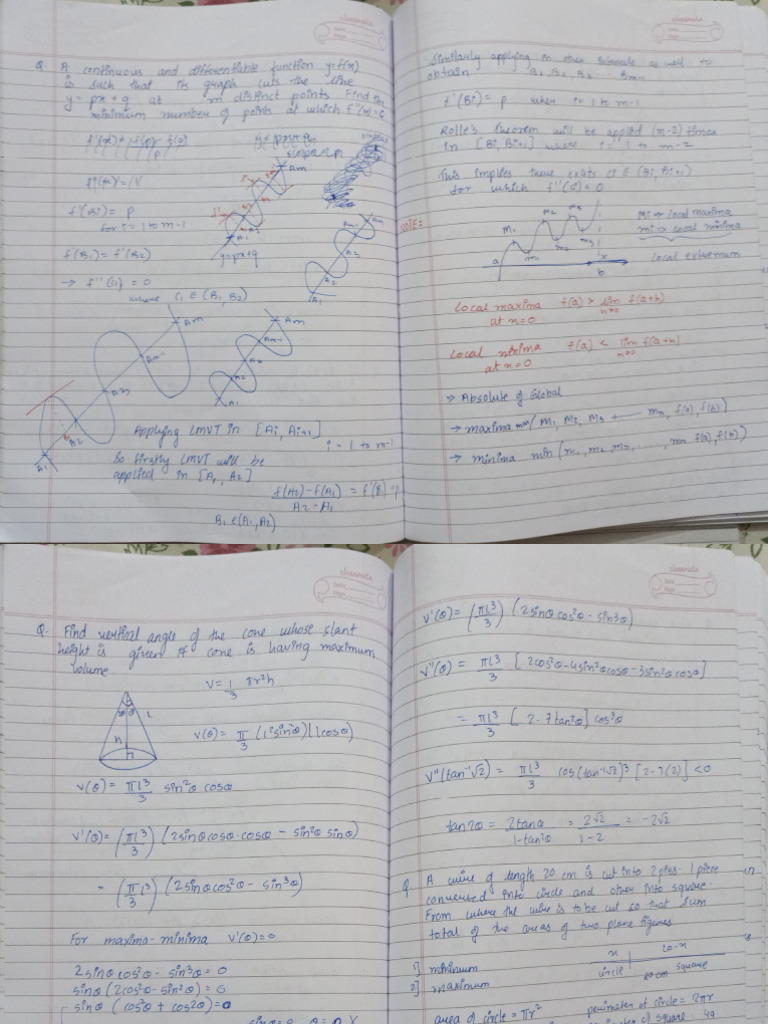 classmate
Date
Page
Q. A continuous and differentiable function y=f(x)
is such that its graph cuts the line
y = px+q at m distinct points. Find the
minimum number of points at which f''(x)=0
f'(Bi) = p
for i = 1 to m-1
y=px+q
f'(B1) = f'(B2)
→ f''(c1) = 0
where c1 ∈ (B1, B2)
A1
A2
A3
Am-1
Am
Applying LMVT in [Ai, Ai+1]
i = 1 to m-1
So firstly LMVT will be
applied in [A1, A2]
f(A2)-f(A1) = f'(B1)
A2-A1
B1 ∈ (A1, A2)
classmate
Date
Page
Similarly applying in other intervals as well to
obtain B1, B2, B3 ... Bm-1
f'(Bi) = p where i = 1 to m-1
Rolle's theorem will be applied (m-2) times
in [Bi, Bi+1] where i = 1 to m-2
This implies there exists ci ∈ (Bi, Bi+1)
for which f''(ci) = 0
NOTE:
M1 M2 M3
m1 m2 m3
a b x
Mi → local maxima
mi → local minima
local extremum
Local maxima f(a) > lim f(a+h)
at x=0 h→0
Local minima f(a) < lim f(a+h)
at x=0 h→0
→ Absolute of Global
→ maxima max( M1, M2, M3 ----- Mn, f(a), f(b))
→ minima min (m1, m2, m3, ....., mn f(a), f(b))
classmate
Date
Page
Q. Find vertical angle of the cone whose slant
height is given if cone is having maximum
volume
V = 1/3 πr²h
θ θ l
h
r
V(θ) = π/3 (l²sin²θ)(lcosθ)
V(θ) = πl³/3 sin²θ cosθ
V'(θ) = (πl³/3) (2sinθcosθ.cosθ - sin²θ sinθ)
= (π/3 l³) (2sinθcos²θ - sin³θ)
For maxima-minima V'(θ)=0
2sinθcos²θ - sin³θ = 0
sinθ (2cos²θ - sin²θ) = 0
sinθ (cos²θ + cos2θ) = 0
classmate
Date
Page
V'(θ) = (πl³/3) (2sinθcos²θ - sin³θ)
V''(θ) = πl³/3 [2cos³θ-4sin²θcosθ-3sin²θcosθ]
= πl³/3 [2-7tan²θ] cos³θ
V''(tan⁻¹√2) = πl³/3 cos(tan⁻¹√2)³ [2-7(2)] <0
tan2θ = 2tanθ/1-tan²θ = 2√2/1-2 = -2√2
Q. A wire of length 20 cm is cut into 2 pies. 1 piece
converted into circle and other into square.
From where the wire is to be cut so that sum
total of the areas of two plane figures
1] minimum
2] maximum
x 20-x
circle 20cm square
area of circle = πr²
perimeter of circle = 2πr